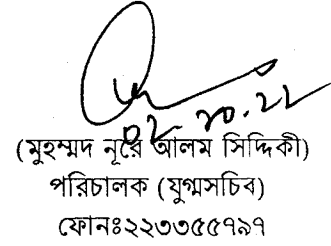 ০২.১০.২২
(মুহম্মদ নূরে আলম সিদ্দিকী)
পরিচালক (যুগ্মসচিব)
ফোনঃ২২৩৩৫৫৭৯৭